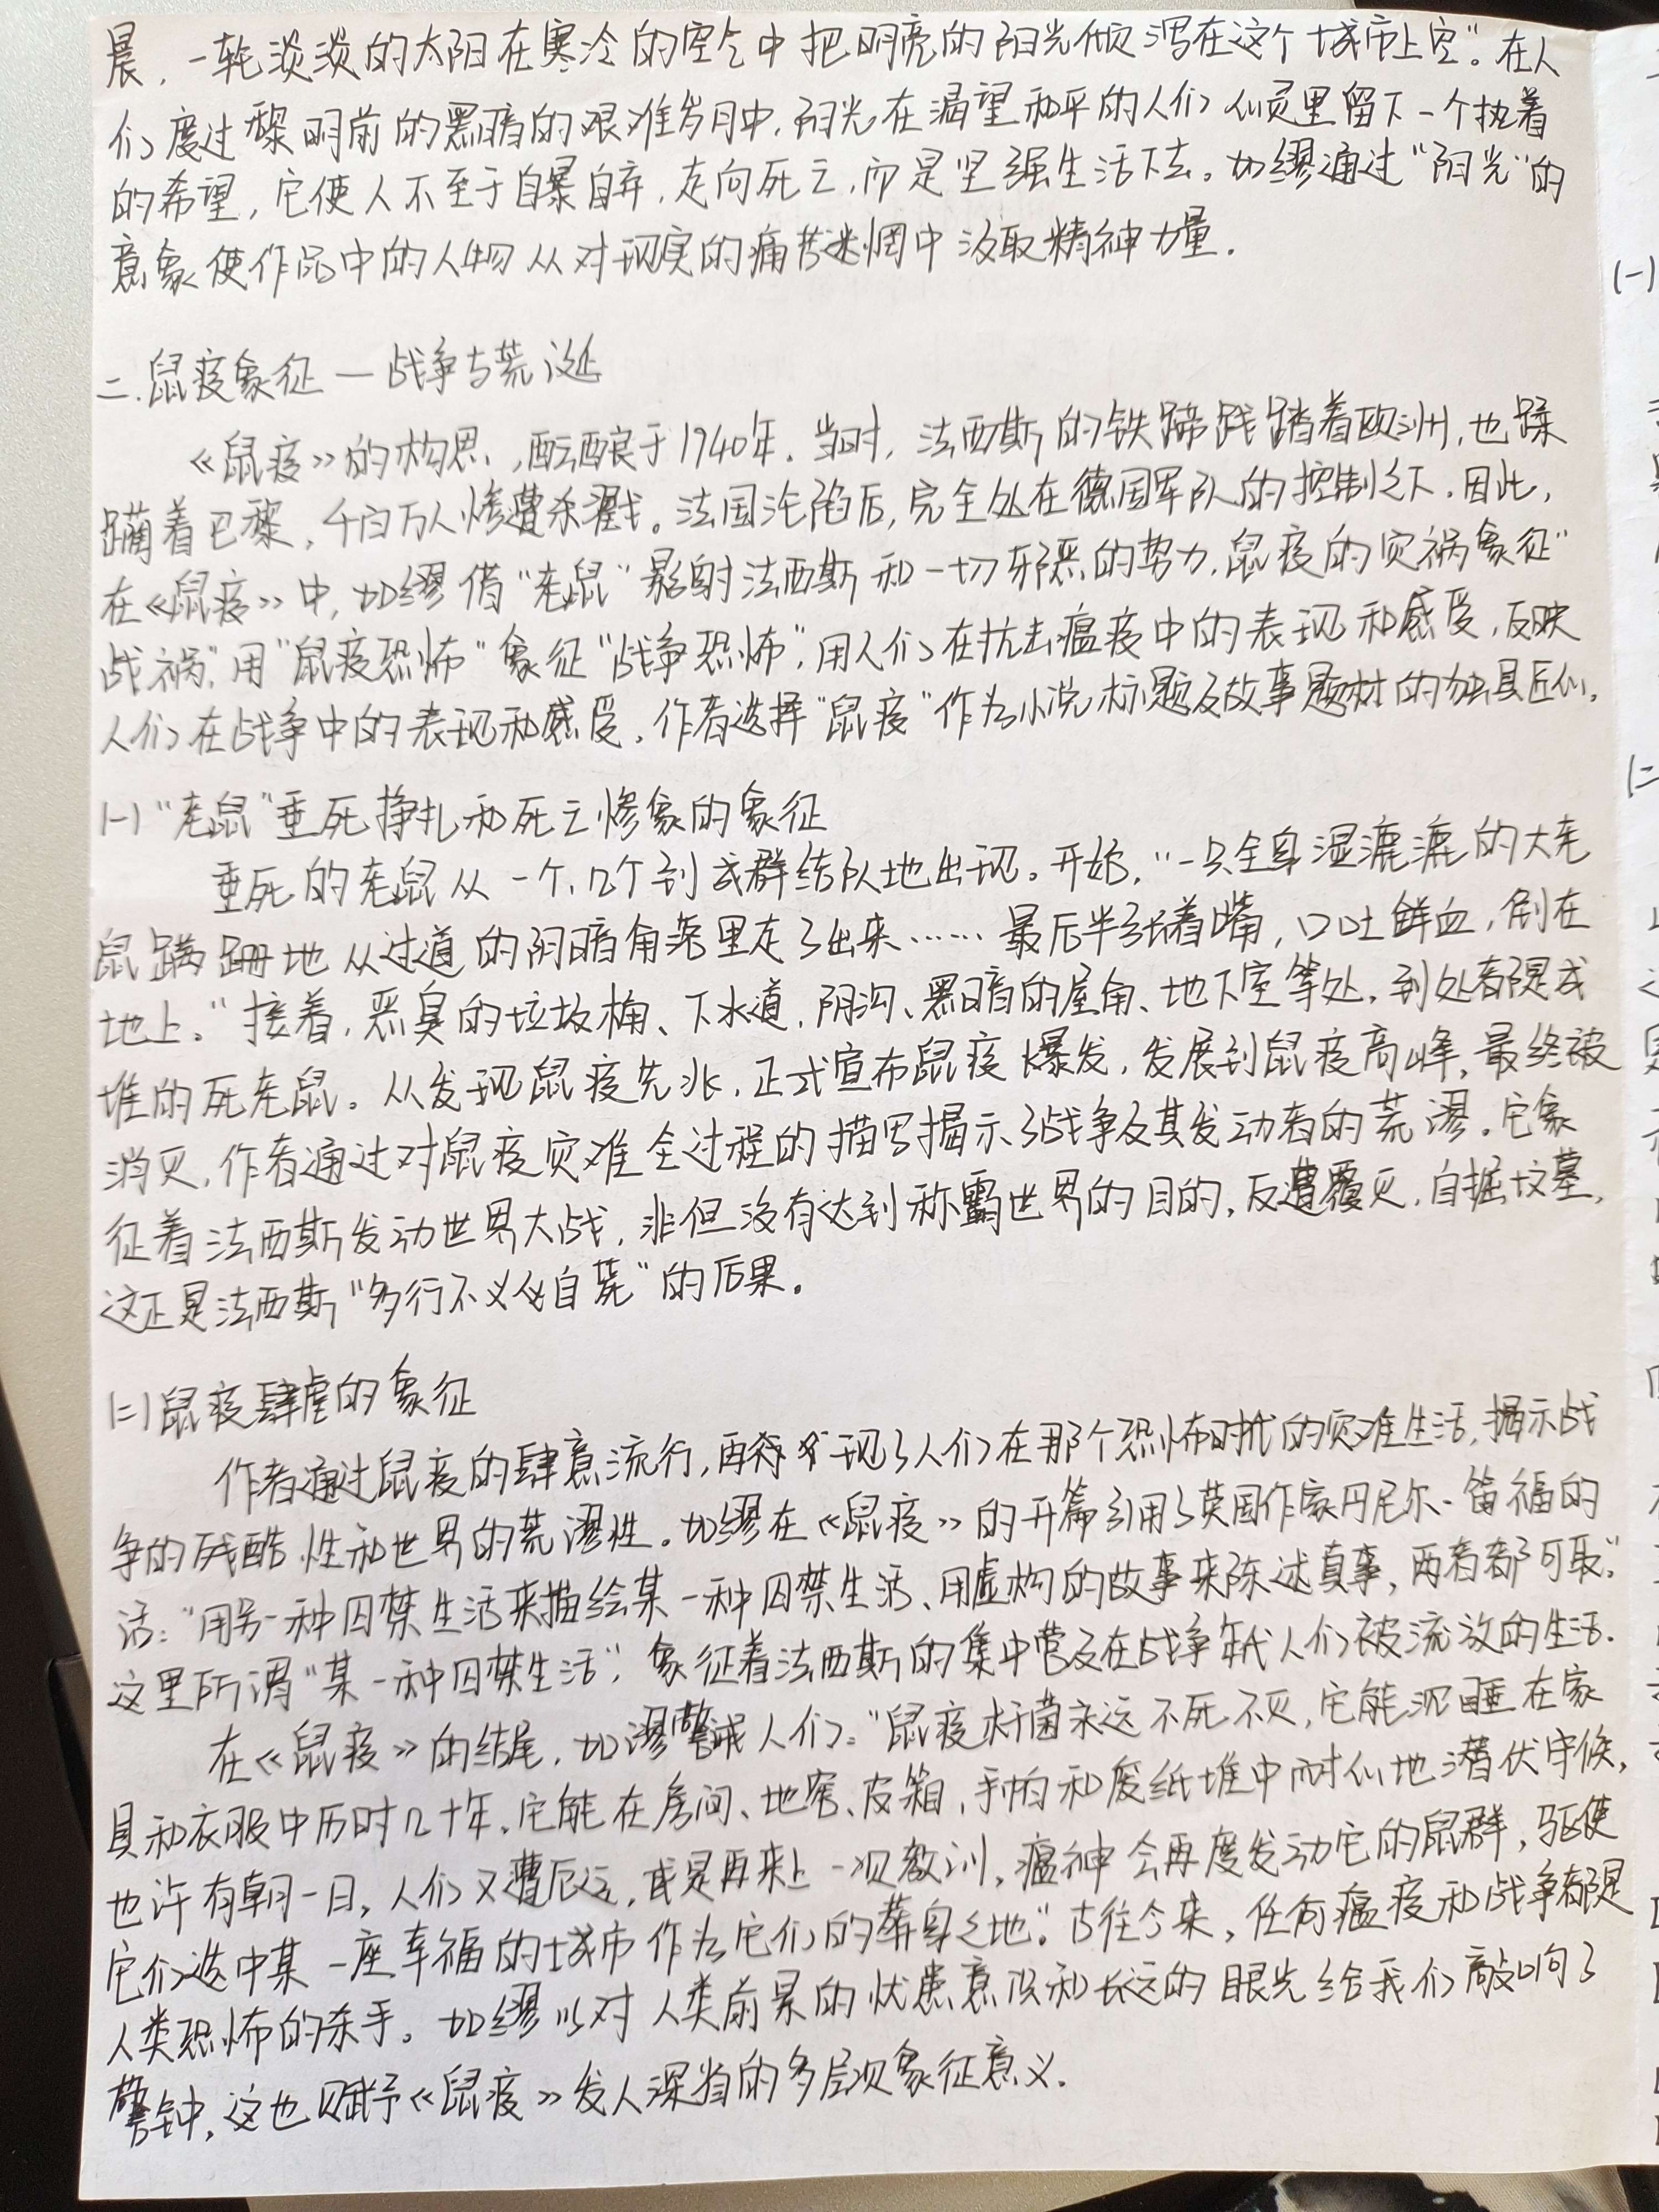 晨，一轮淡淡的太阳在寒冷的空气中把明亮的阳光倾泻在这个城市上空”。在人
们度过黎明前的黑暗的艰难岁月中，阳光在渴望和平的人们心灵里留下一个执着
的希望，它使人不至于自暴自弃，走向死亡，而是坚强生活下去。加缪通过“阳光”的
意象使作品中的人物从对现实的痛苦迷惘中汲取精神力量.
二.鼠疫象征—战争与荒诞
《鼠疫》的构思，酝酿于1940年.当时，法西斯的铁蹄践踏着欧洲，也蹂
躏着巴黎，千百万人惨遭杀戮。法国沦陷后，完全处在德国军队的控制之下.因此，
在《鼠疫》中，加缪借“老鼠”影射法西斯和一切邪恶的势力.鼠疫的灾祸象征“
战祸”.用“鼠疫恐怖“象征“战争恐怖”.用人们在抗击瘟疫中的表现和感受，反映
人们在战争中的表现和感受.作者选择“鼠疫”作为小说标题及故事题材的独具匠心.
(一)“老鼠”垂死挣扎和死亡惨象的象征
垂死的老鼠从一个、几个到成群结队地出现。开始，“一只全身湿漉漉的大老
鼠蹒跚地从过道的阴暗角落里走了出来……最后半张着嘴，口吐鲜血，倒在
地上。”接着，恶臭的垃圾桶、下水道、阴沟、黑暗的屋角、地下室等处，到处都是成
堆的死老鼠。从发现鼠疫先兆，正式宣布鼠疫爆发，发展到鼠疫高峰，最终被
消灭，作者通过对鼠疫灾难全过程的描写揭示了战争及其发动者的荒谬。它象
征着法西斯发动世界大战，非但没有达到称霸世界的目的，反遭覆灭，自掘坟墓，
这正是法西斯“多行不义必自毙”的后果。
(二)鼠疫肆虐的象征
作者通过鼠疫的肆意流行，再现了人们在那个恐怖时代的灾难生活，揭示战
争的残酷性和世界的荒谬性。加缪在《鼠疫》的开篇引用了英国作家丹尼尔·笛福的
话：“用另一种囚禁生活来描绘某一种囚禁生活、用虚构的故事来陈述真事，两者都可取.”
这里所谓“某一种囚禁生活”，象征着法西斯的集中营及在战争年代人们被流放的生活.
在《鼠疫》的结尾，加谬警诫人们：“鼠疫杆菌永远不死不灭，它能沉睡在家
具和衣服中历时几十年，它能在房间、地窖、皮箱、手帕和废纸堆中耐心地潜伏守候，
也许有朝一日，人们又遭厄运，或是再来上一次教训，瘟神会再度发动它的鼠群，驱使
它们选中某一座幸福的城市作为它们的葬身之地.”古往今来，任何瘟疫和战争都是
人类恐怖的杀手。加缪以对人类前景的忧患意识和长远的眼光给我们敲响了
警钟，这也赋予《鼠疫》发人深省的多层次象征意义.